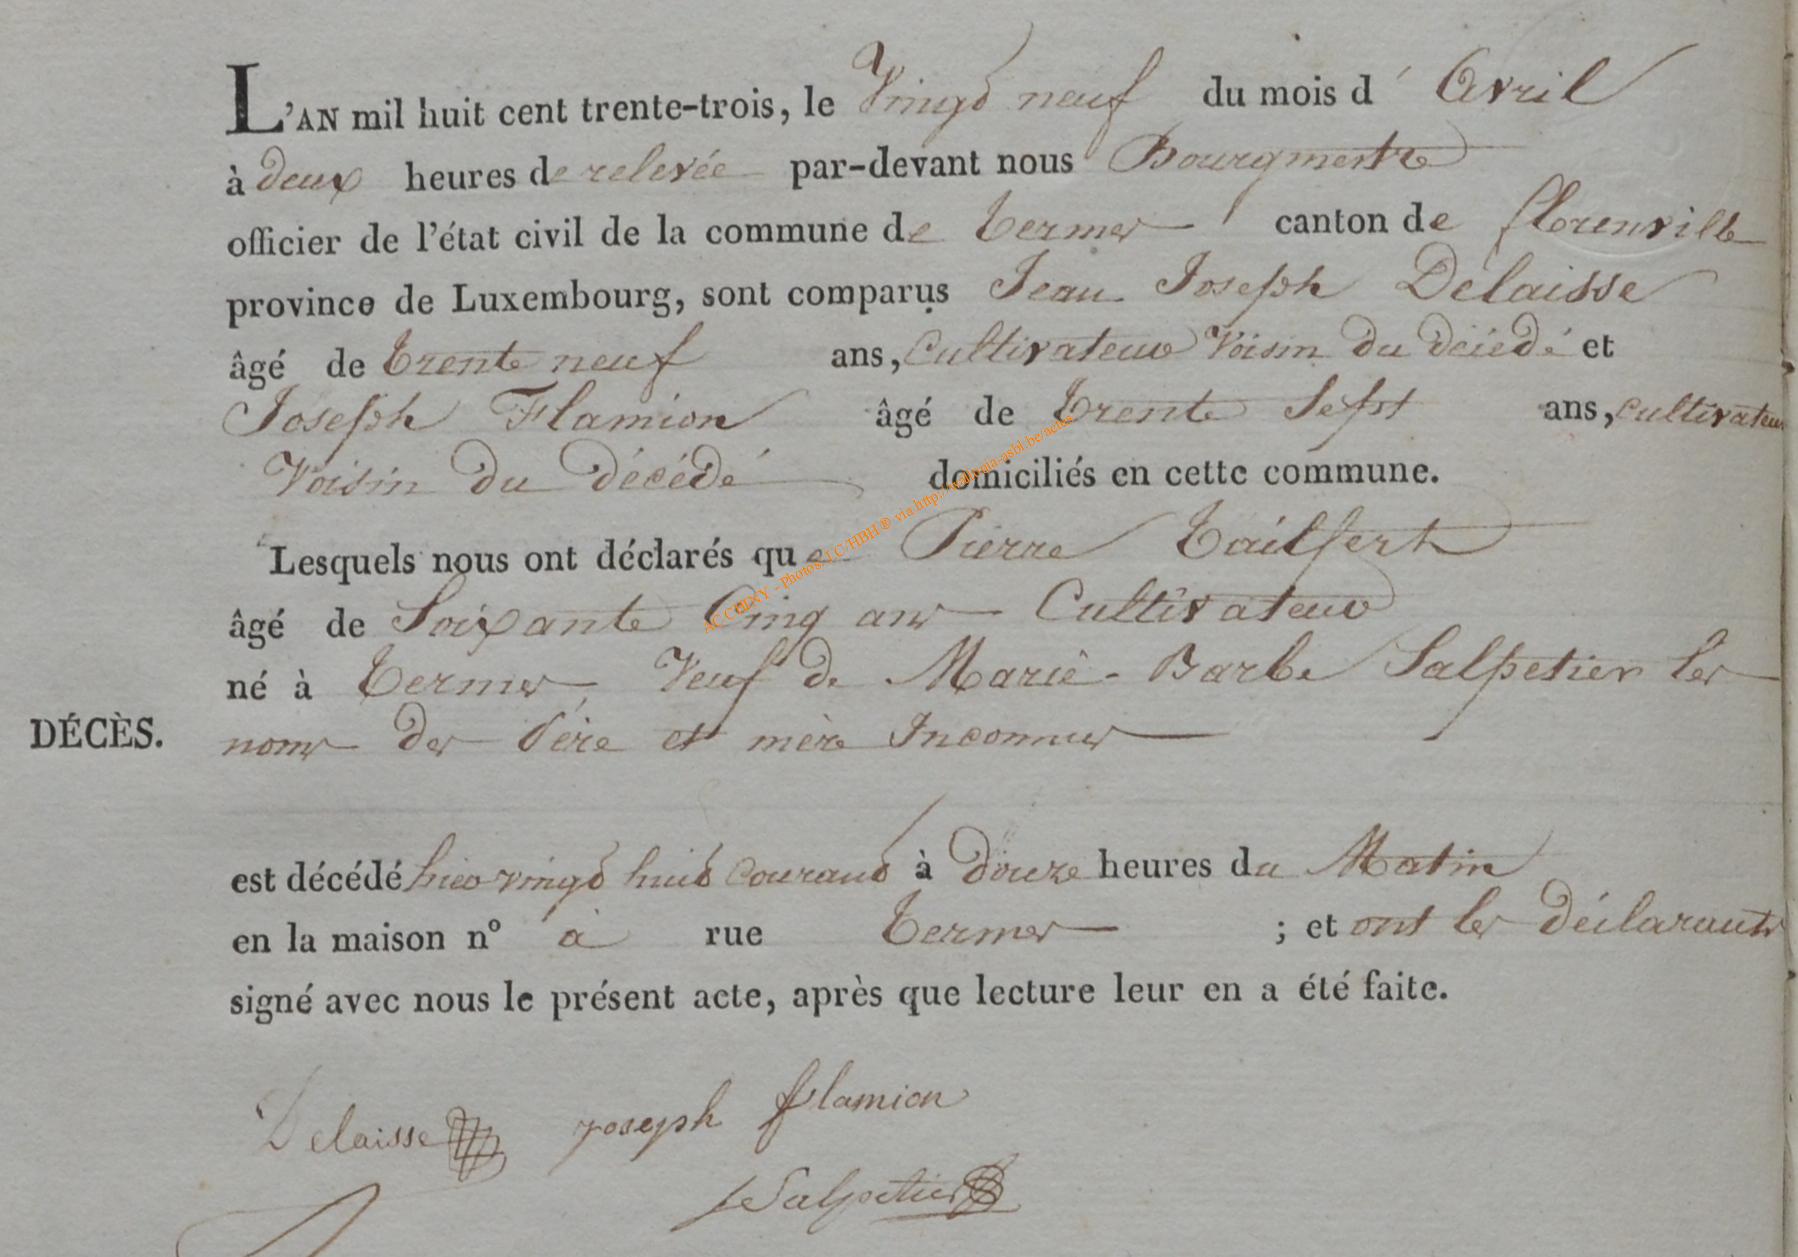 L'AN mil huit cent trente-trois, le Vingt neuf du mois d' Avril
à deux heures de relevée par-devant nous Bourgmestre
officier de l'état civil de la commune de Termes canton de florenville
province de Luxembourg, sont comparus Jean Joseph Delaisse
âgé de trente neuf ans, Cultivateur Voisin du décédé et
Joseph Flamion âgé de trente Sept ans, Cultivateur
Voisin du décédé domiciliés en cette commune.
Lesquels nous ont déclarés que Pierre Tailfert
âgé de Soixante Cinq ans Cultivateur
né à Termes, Veuf de Marie-Barbe Salpetier les
DÉCÈS. noms des Père et mère Inconnus
est décédé hier vingt huit Courant à douze heures du Matin
en la maison n° à rue Termes ; et ont les déclarants
signé avec nous le présent acte, après que lecture leur en a été faite.
Delaisse joseph flamion
Salpetier